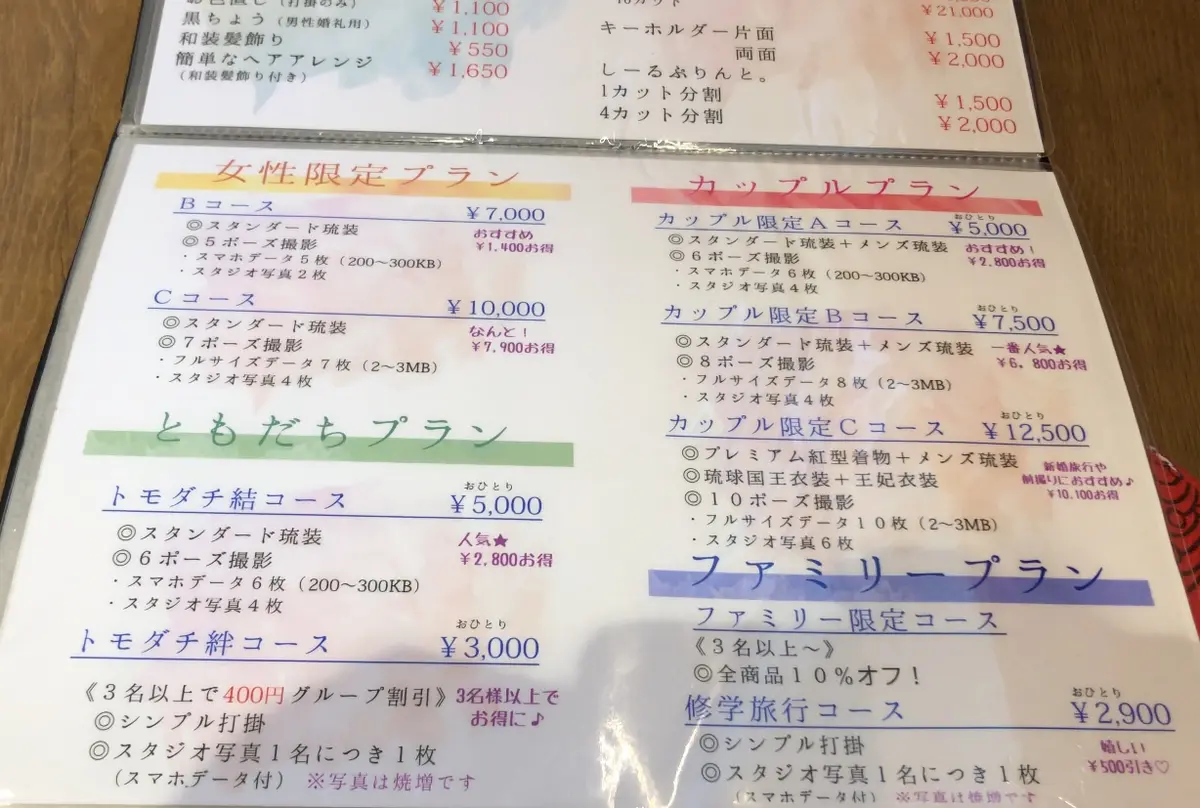 (打掛のみ)
¥1,100
黒ちょう(男性婚礼用)
¥1,100
和装髪飾り
¥550
簡単なヘアアレンジ
¥1,650
(和装髪飾り付き)
¥21,000
キーホルダー片面
¥1,500
両面
¥2,000
しーるぷりんと。
1カット分割
¥1,500
4カット分割
¥2,000
女性限定プラン
Bコース
¥7,000
◎スタンダード琉装
おすすめ
◎5ポーズ撮影
¥1,400お得
・スマホデータ5枚(200〜300KB)
・スタジオ写真2枚
Cコース
¥10,000
◎スタンダード琉装
なんと!
◎7ポーズ撮影
¥7,900お得
・フルサイズデータ7枚(2〜3MB)
・スタジオ写真4枚
ともだちプラン
おひとり
トモダチ結コース
¥5,000
◎スタンダード琉装
人気★
◎6ポーズ撮影
¥2,800お得
・スマホデータ6枚(200〜300KB)
・スタジオ写真4枚
おひとり
トモダチ絆コース
¥3,000
《3名以上で400円グループ割引》
3名様以上で
お得に♪
◎シンプル打掛
◎スタジオ写真1名につき1枚
(スマホデータ付) ※写真は焼増です
カップルプラン
おひとり
カップル限定Aコース
¥5,000
◎スタンダード琉装+メンズ琉装
おすすめ!
◎6ポーズ撮影
¥2,800お得
・スマホデータ6枚(200〜300KB)
・スタジオ写真4枚
おひとり
カップル限定Bコース
¥7,500
◎スタンダード琉装+メンズ琉装
一番人気★
◎8ポーズ撮影
¥6,800お得
・フルサイズデータ8枚(2〜3MB)
・スタジオ写真4枚
おひとり
カップル限定Cコース
¥12,500
◎プレミアム紅型着物+メンズ琉装
新婚旅行や
◎琉球国王衣装+王妃衣装
前撮りにおすすめ♪
◎10ポーズ撮影
¥10,100お得
・フルサイズデータ10枚(2〜3MB)
・スタジオ写真6枚
ファミリープラン
ファミリー限定コース
《3名以上〜》
◎全商品10%オフ!
おひとり
修学旅行コース
¥2,900
◎シンプル打掛
嬉しい
¥500引き♡
◎スタジオ写真1名につき1枚
(スマホデータ付) ※写真は焼増です